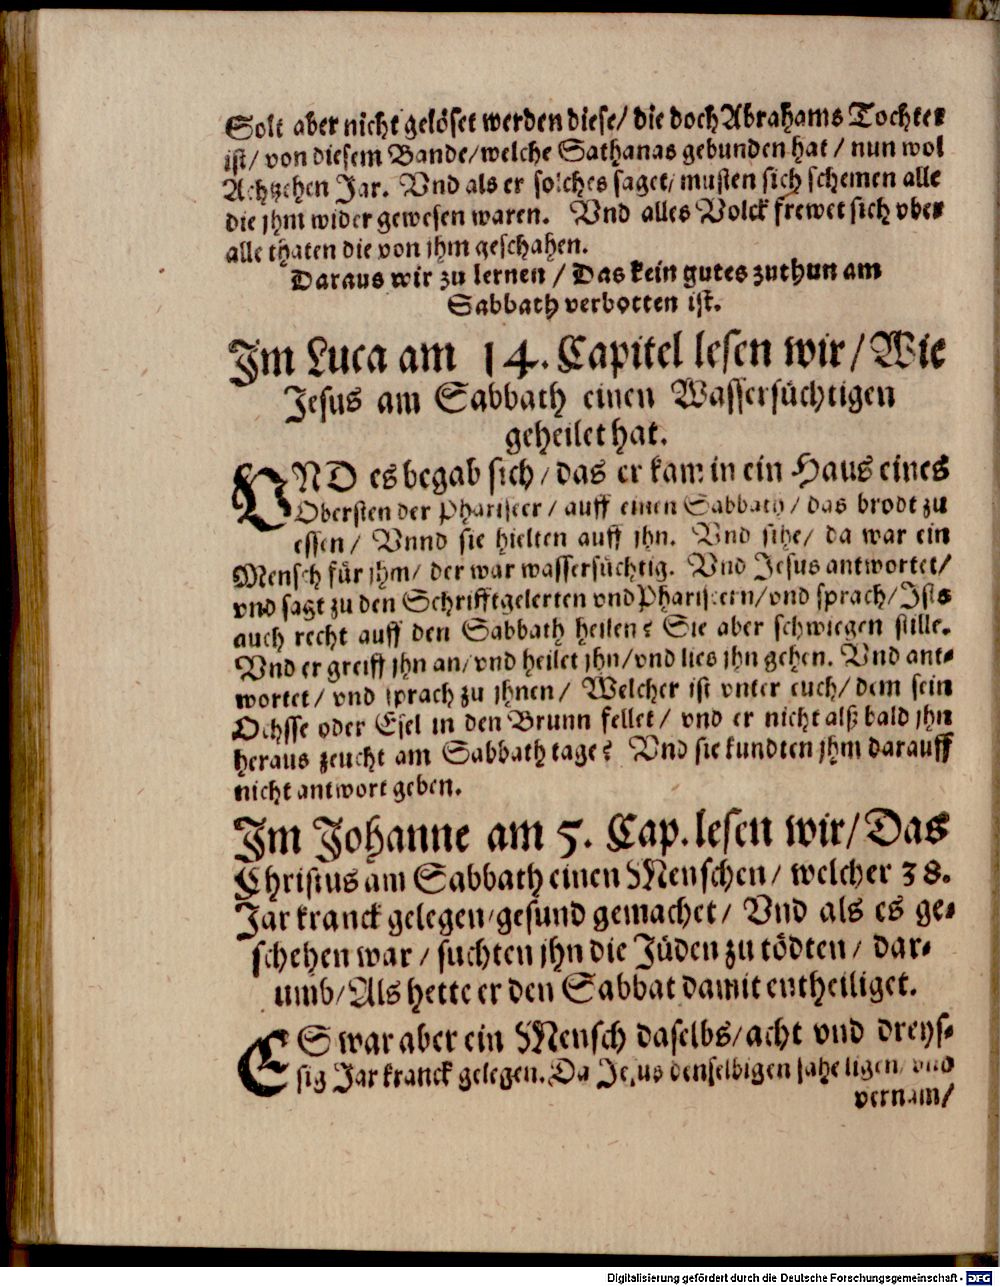 Solt aber nicht gelöset werden diese/ die doch Abrahams Tochter
ist/ von diesem Bande/welche Sathanas gebunden hat / nun wol
Achtzehen Jar. Vnd als er solches saget/ musten sich schemen alle
die jhm wider gewesen waren. Vnd alles Volck frewet sich vber
alle thaten die von jhm geschahen.
Daraus wir zu lernen / Das kein gutes zuthun am
Sabbath verbotten ist.
Im Luca am 14. Capitel lesen wir/ Wie
Jesus am Sabbath einen Wassersüchtigen
geheilet hat.
VND es begab sich/ das er kam in ein Haus eines
Obersten der Phariseer / auff einen Sabbath / das brodt zu
essen / Vnnd sie hielten auff jhn. Vnd sihe/ da war ein
Mensch für jhm/ der war wassersüchtig. Vnd Jesus antwortet/
vnd sagt zu den Schrifftgelerten vnd Phariseern/vnd sprach/ Ists
auch recht auff den Sabbath heilen? Sie aber schwiegen stille.
Vnd er greiff jhn an/vnd heilet jhn/vnd lies jhn gehen. Vnd ant-
wortet/ vnd sprach zu jhnen/ Welcher ist vnter euch/ dem sein
Ochsse oder Esel in den Brunn fellet/ vnd er nicht alß bald jhn
heraus zeucht am Sabbath tage? Vnd sie kundten jhm darauff
nicht antwort geben.
Im Johanne am 5. Cap. lesen wir/ Das
Christus am Sabbath einen Menschen/ welcher 38.
Jar kranck gelegen/gesund gemachet/ Vnd als es ge-
schehen war / suchten jhn die Jüden zu tödten/ dar-
umb/ Als hette er den Sabbat damit entheiliget.
ES war aber ein Mensch daselbs/ acht vnd dreys-
sig Jar kranck gelegen. Da Jesus denselbigen sahe ligen/ vnd
vernam/
Digitalisierung gefördert durch die Deutsche Forschungsgemeinschaft - DFG